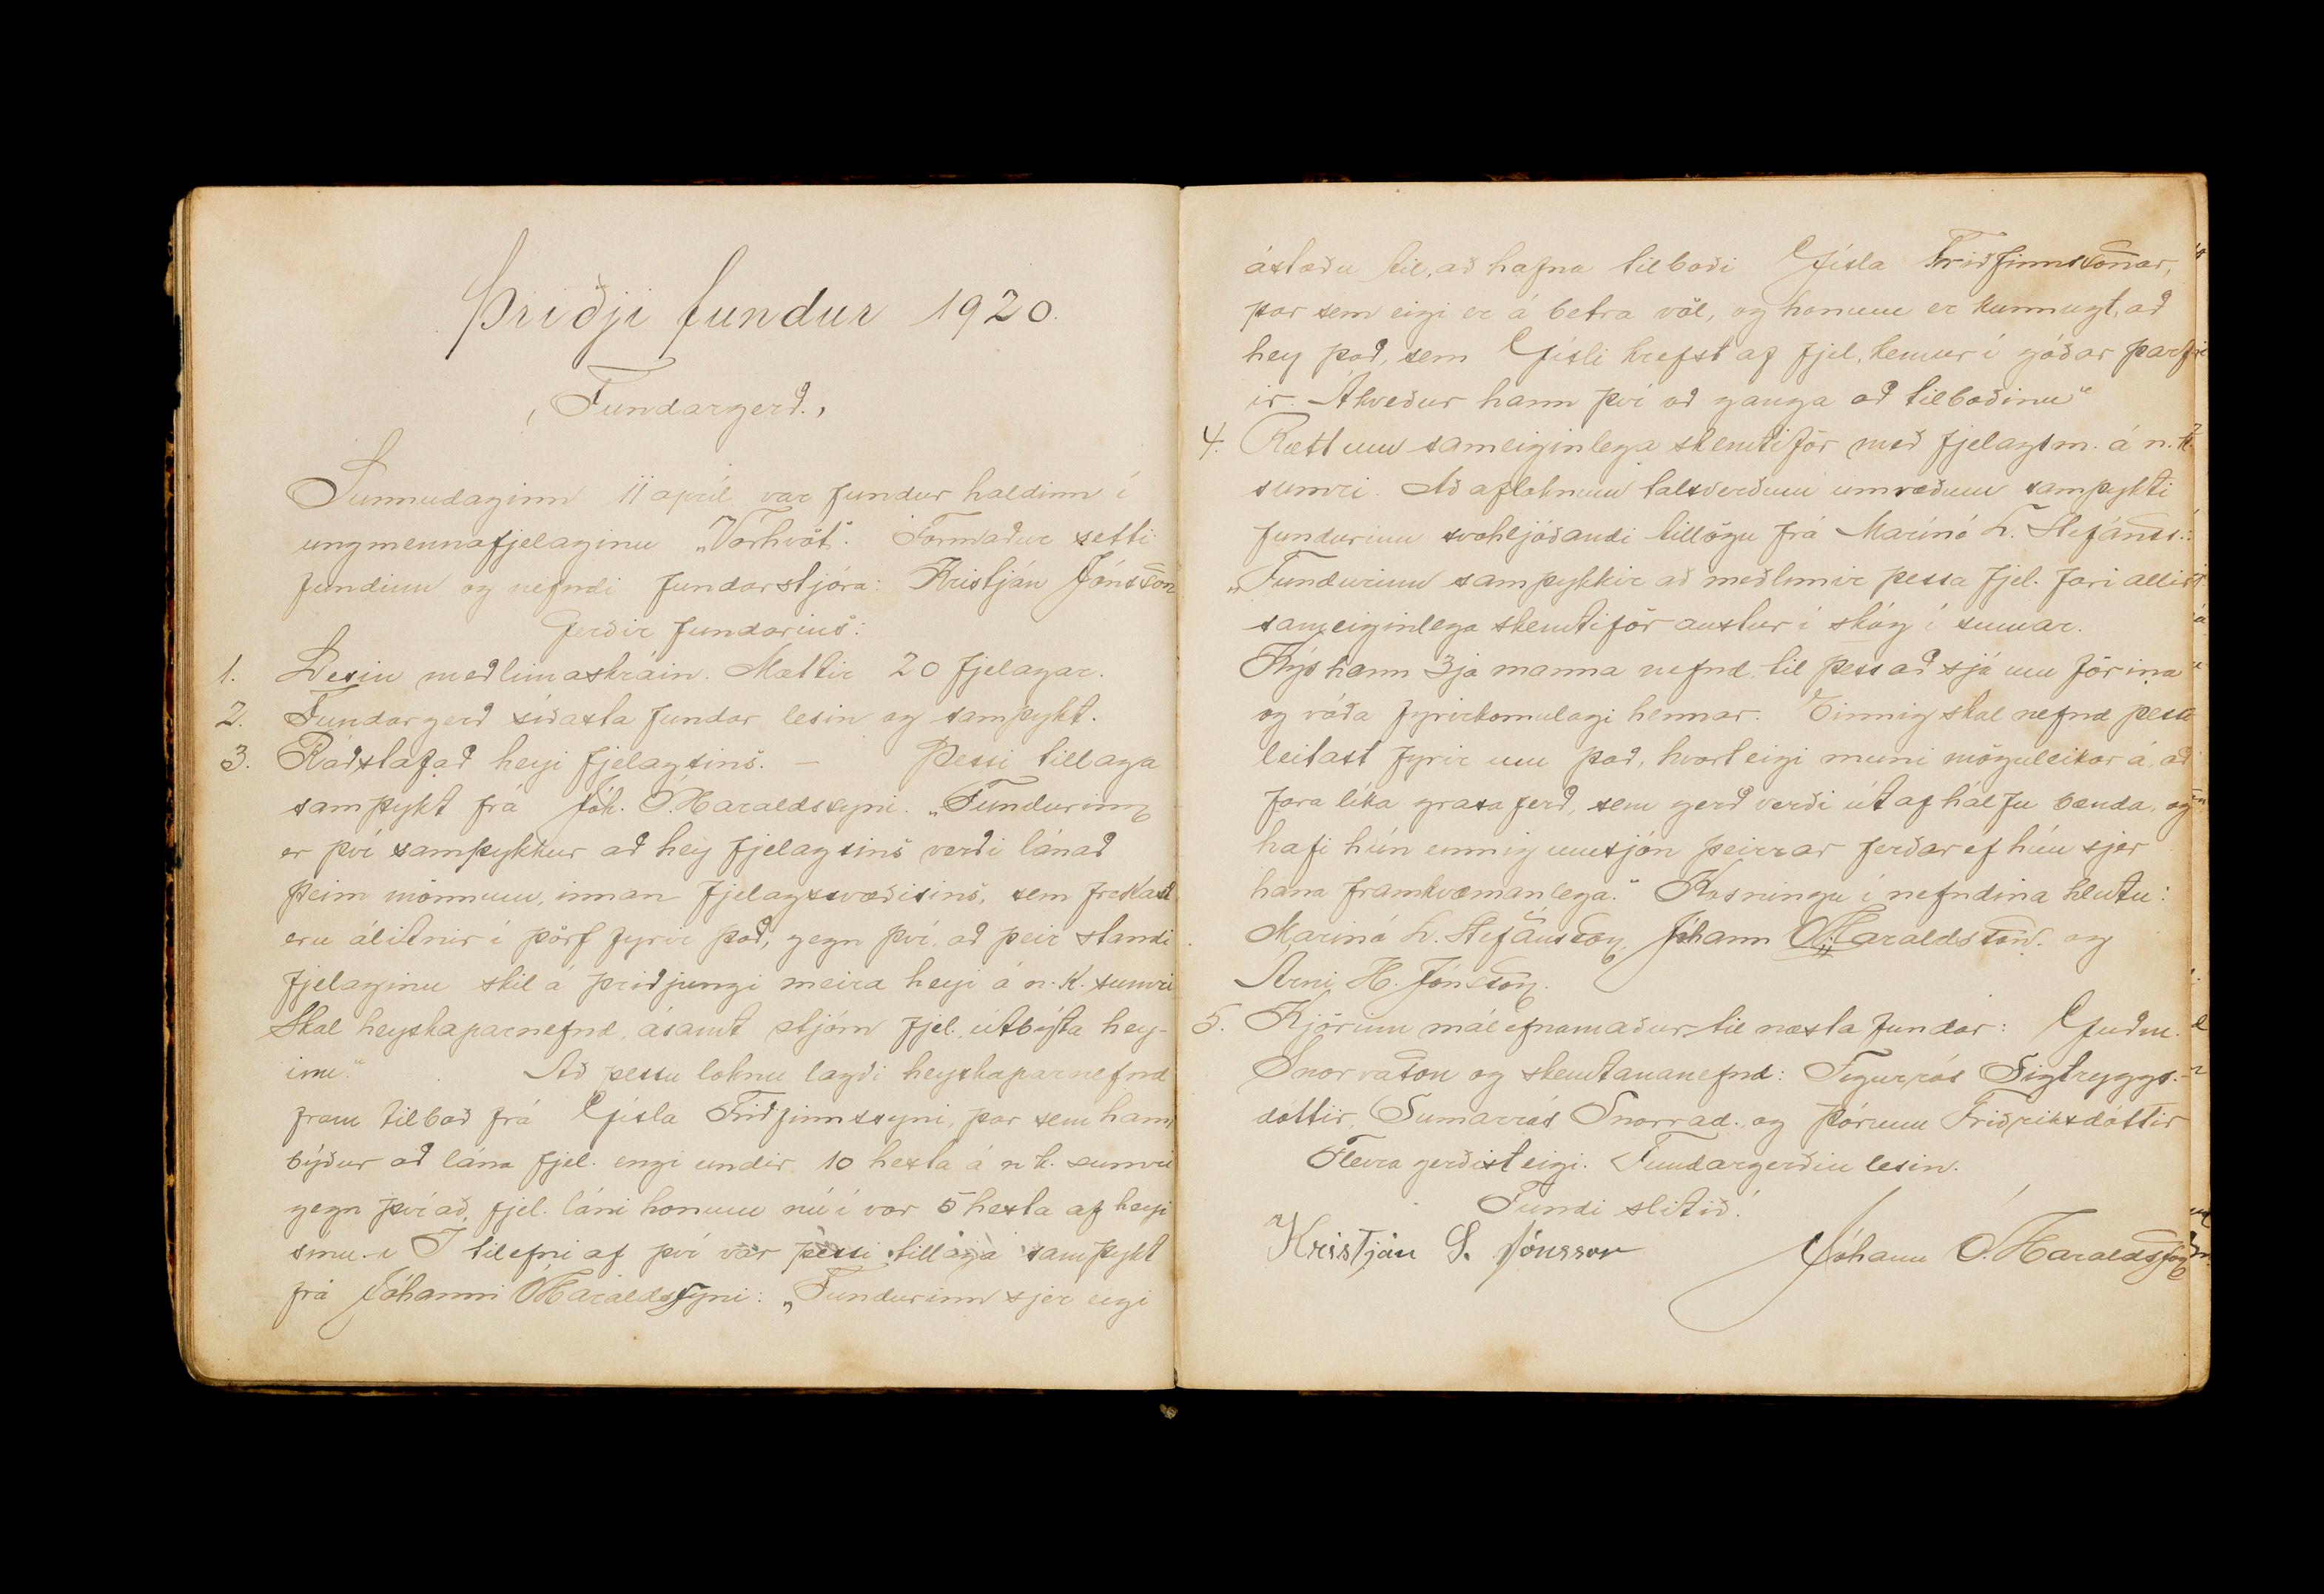 Þriðji fundur 1920.
"Fundargerð."
Sunnudaginn 11 apríl var fundur haldinn í
ungmennafjelaginu „Vorhvöt". Formaður setti
fundinn og nefndi fundarstjóra: Kristján Jónsson
Gerðir fundarins:
1. Lesin meðlimaskráin. Mættir 20 fjelagar.
2. Fundargerð síðasta fundar lesin og samþykt.
3. Ráðstafað heyi fjelagsins. – Þessi tillaga
samþykt frá Jóh. Ó. Haraldssyni. „Fundurinn
er því samþykkur að hey fjelagsins verði lánað
þeim mönnum, innan fjelagssvæðisins, sem frekast
eru álitnir í þörf fyrir það, gegn því, að þeir standi
fjelaginu skil á þriðjungi meira heyi á n.k. sumri
Skal heyskaparnefnd, ásamt stjórn fjel. útbýta hey-
inu." Að þessu loknu lagði heyskaparnefnd
fram tilboð frá Gísla Friðfinnssyni, þar sem hann
býður að lána fjel. engi undir 10 hesta á n k. sumri
gegn því að, fjel. láni honum nú í vor 5 hesta af heyi
sínu. Í tilefni af því var þessi tillaga samþykt
frá Jóhanni Ó. Haraldssyni: „Fundurinn sjer eigi
ástæðu til, að hafna tilboði Gísla Friðfinnssonar,
þar sem eigi er á betra völ, og honum er kunnugt, að
hey það, sem Gísli krefst af fjel, kemur í góðar þarf
ir. Ákveður hann því að ganga að tilboðinu"
4. Rætt um sameiginlega skemtiför með fjelagsm. á n.k.
sumri. Að afloknum talsverðum umræðum samþykti
fundurinn svohljóðandi tillögu frá Marínó L. Stefánss.:
„Fundurinn samþykkir að meðlimir þessa fjel. fari allir
sameiginlega skemtiför austur í skóg í sumar.
Kýs hann 3ja manna nefnd, til þess að sjá um förina
og ráða fyrirkomulagi hennar. Einnig skal nefnd þessi
leitast fyrir um það, hvort eigi muni möguleikar á, að
fara líka grasaferð, sem gerð verði út af hálfu bænda, og
hafi hún einnig umsjón þeirrar ferðar ef hún sjer
hana framkvæmanlega." Kosningu í nefndina hlutu:
Marinó L. Stefánsson, Jóhann Ó. Haraldsson. og
Árni H. Jónsson.
5. Kjörinn málefnamaður til næsta fundar: Guðm.
Snorrason og skemtananefnd: Sigurrós Sigtryggs.-
dóttir, Sumarrós Snorrad. og Þórunn Friðriksdóttir
Fleira gerðist eigi. Fundargerðin lesin.
Fundi slitið!
Kristján S. Jónsson Jóhann Ó. Haraldsson